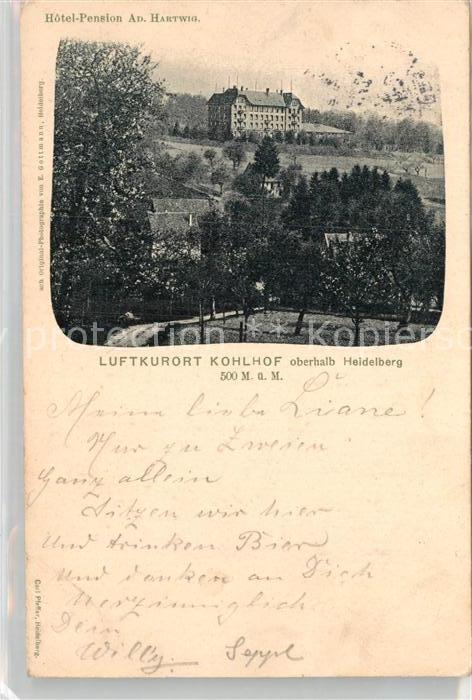 Hôtel-Pension AD. HARTWIG.
nach Original-Photographie von E. Gottmann, Heidelberg.
LUFTKURORT KOHLHOF oberhalb Heidelberg
500 M. ü. M.
Meine liebe Liane!
Nur zu Zweien
Ganz allein
Sitzen wir hier
Und trinken Bier
Und danken an Dich
Herzinniglich
Dein
Willy Seppl
Carl Pfeffer, Heidelberg.